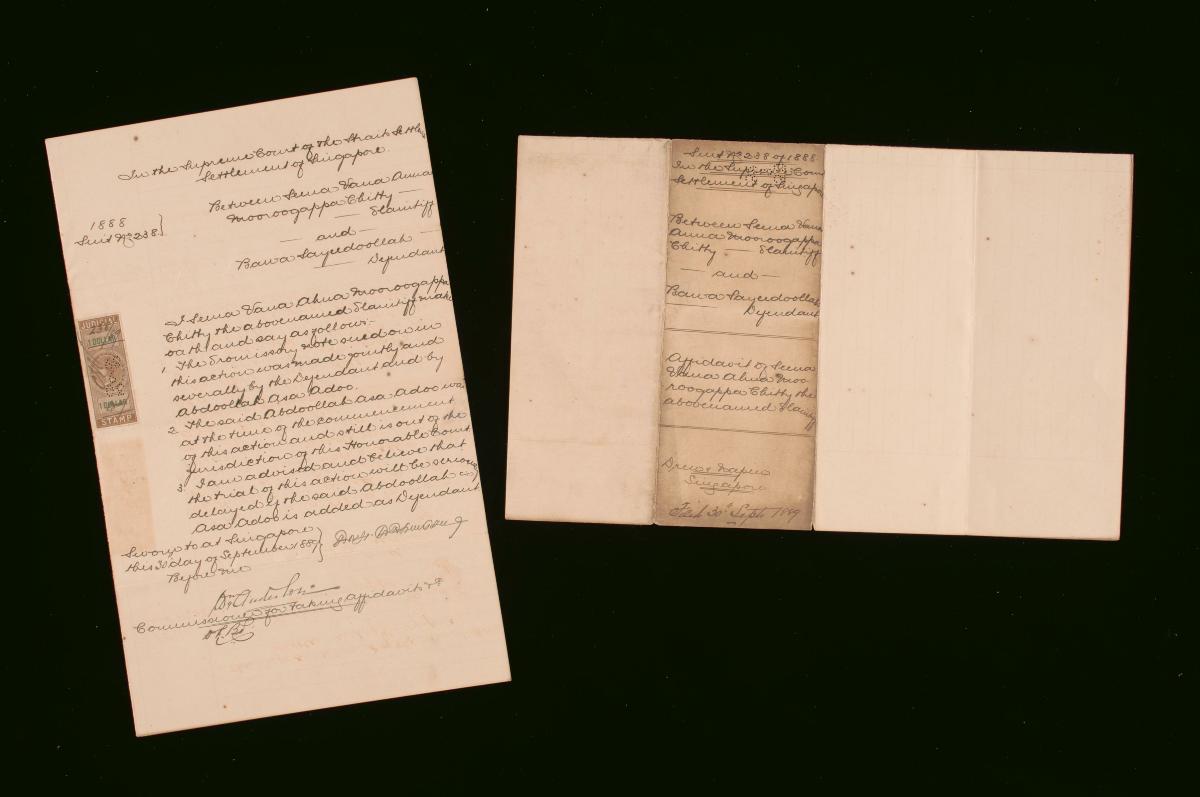 In the Supreme Court of the Straits Settle
Settlement of Singapore.
1888
Suit No 238.
Between Seena Vana Anna
Mooroogappa Chitty —
— Plaintiff
— and —
Bawa Sayeedoollah —
— Defendant
I Seena Vana Ahna Mooroogappa
Chitty the abovenamed Plaintiff make
oath and say as follow:-
1. The Promissory note sued on in
this action was made jointly and
severally by the Defendant and by
Abdoollah Asa Adoo.
2. The said Abdoollah Asa Adoo was
at the time of the commencement
of this action and still is out of the
jurisdiction of this Honorable Court
3. I am advised and believe that
the trial of this action will be seriously
delayed if the said Abdoollah
Asa Adoo is added as Defendant
Sworn to at Singapore
this 30 day of September 1889
Before me
Commissioner for taking Affidavits &c
JUDICIAL
1 DOLLAR
1 DOLLAR
STAMP
Suit No 238 of 1888
In the Supreme Court
Settlement of Singapore
Between Seena Vana
Anna Mooroogappa
Chitty — Plaintiff
— and —
Bawa Sayeedoollah
Defendant
Affidavit of Seena
Vana Ahna Moo
roogappa Chitty the
abovenamed Plaintiff
Drew & Napier
Singapore
Filed 30th Sept 1889